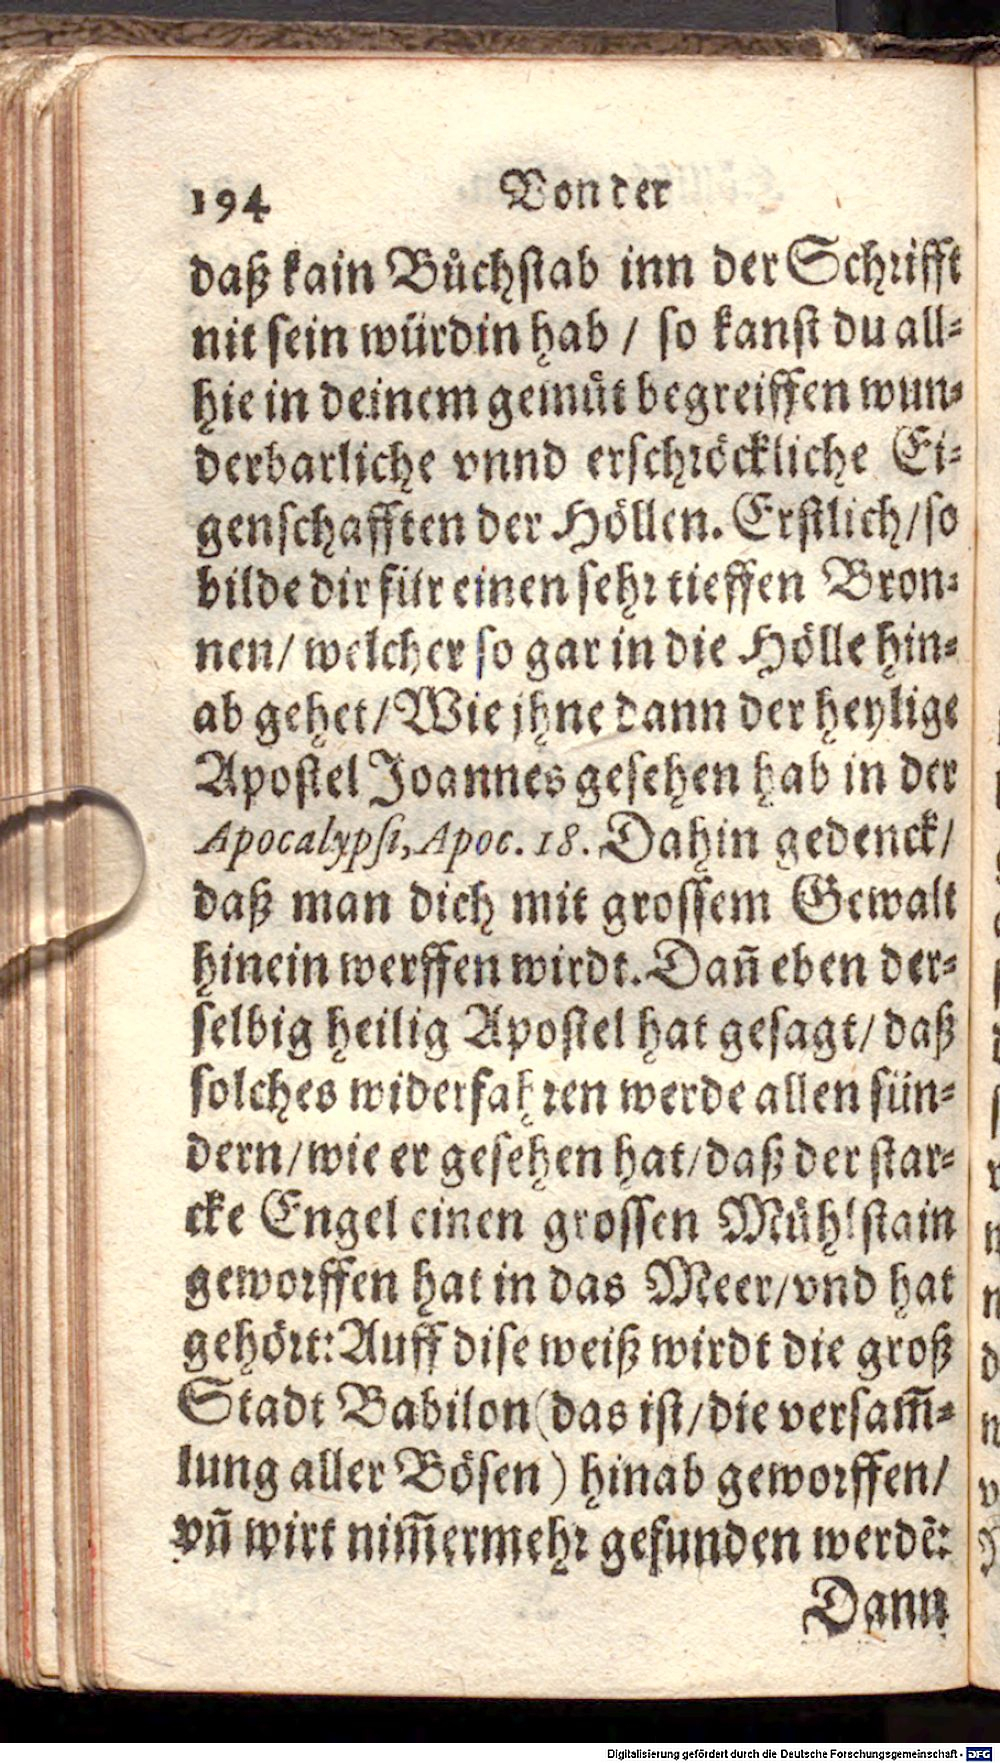 194 Von der
daß kain Bůchstab inn der Schrifft
nit sein würdin hab / so kanst du all-
hie in deinem gemüt begreiffen wun-
derbarliche vnnd erschröckliche Ei-
genschafften der Höllen. Erstlich/ so
bilde dir für einen sehr tieffen Bron-
nen/ welcher so gar in die Hölle hin-
ab gehet/ Wie jhne dann der heylige
Apostel Joannes gesehen hab in der
Apocalypsi, Apoc. 18. Dahin gedenck/
daß man dich mit grossem Gewalt
hinein werffen wirdt. Dañ eben der-
selbig heilig Apostel hat gesagt/ daß
solches widerfahren werde allen sün-
dern/ wie er gesehen hat/ daß der star-
cke Engel einen grossen Mühlstain
geworffen hat in das Meer/ vnd hat
gehört: Auff dise weiß wirdt die groß
Stadt Babilon (das ist/ die versam̃-
lung aller Bösen) hinab geworffen/
vñ wirt nim̃ermehr gefunden werdẽ:
Dann
Digitalisierung gefördert durch die Deutsche Forschungsgemeinschaft - DFG